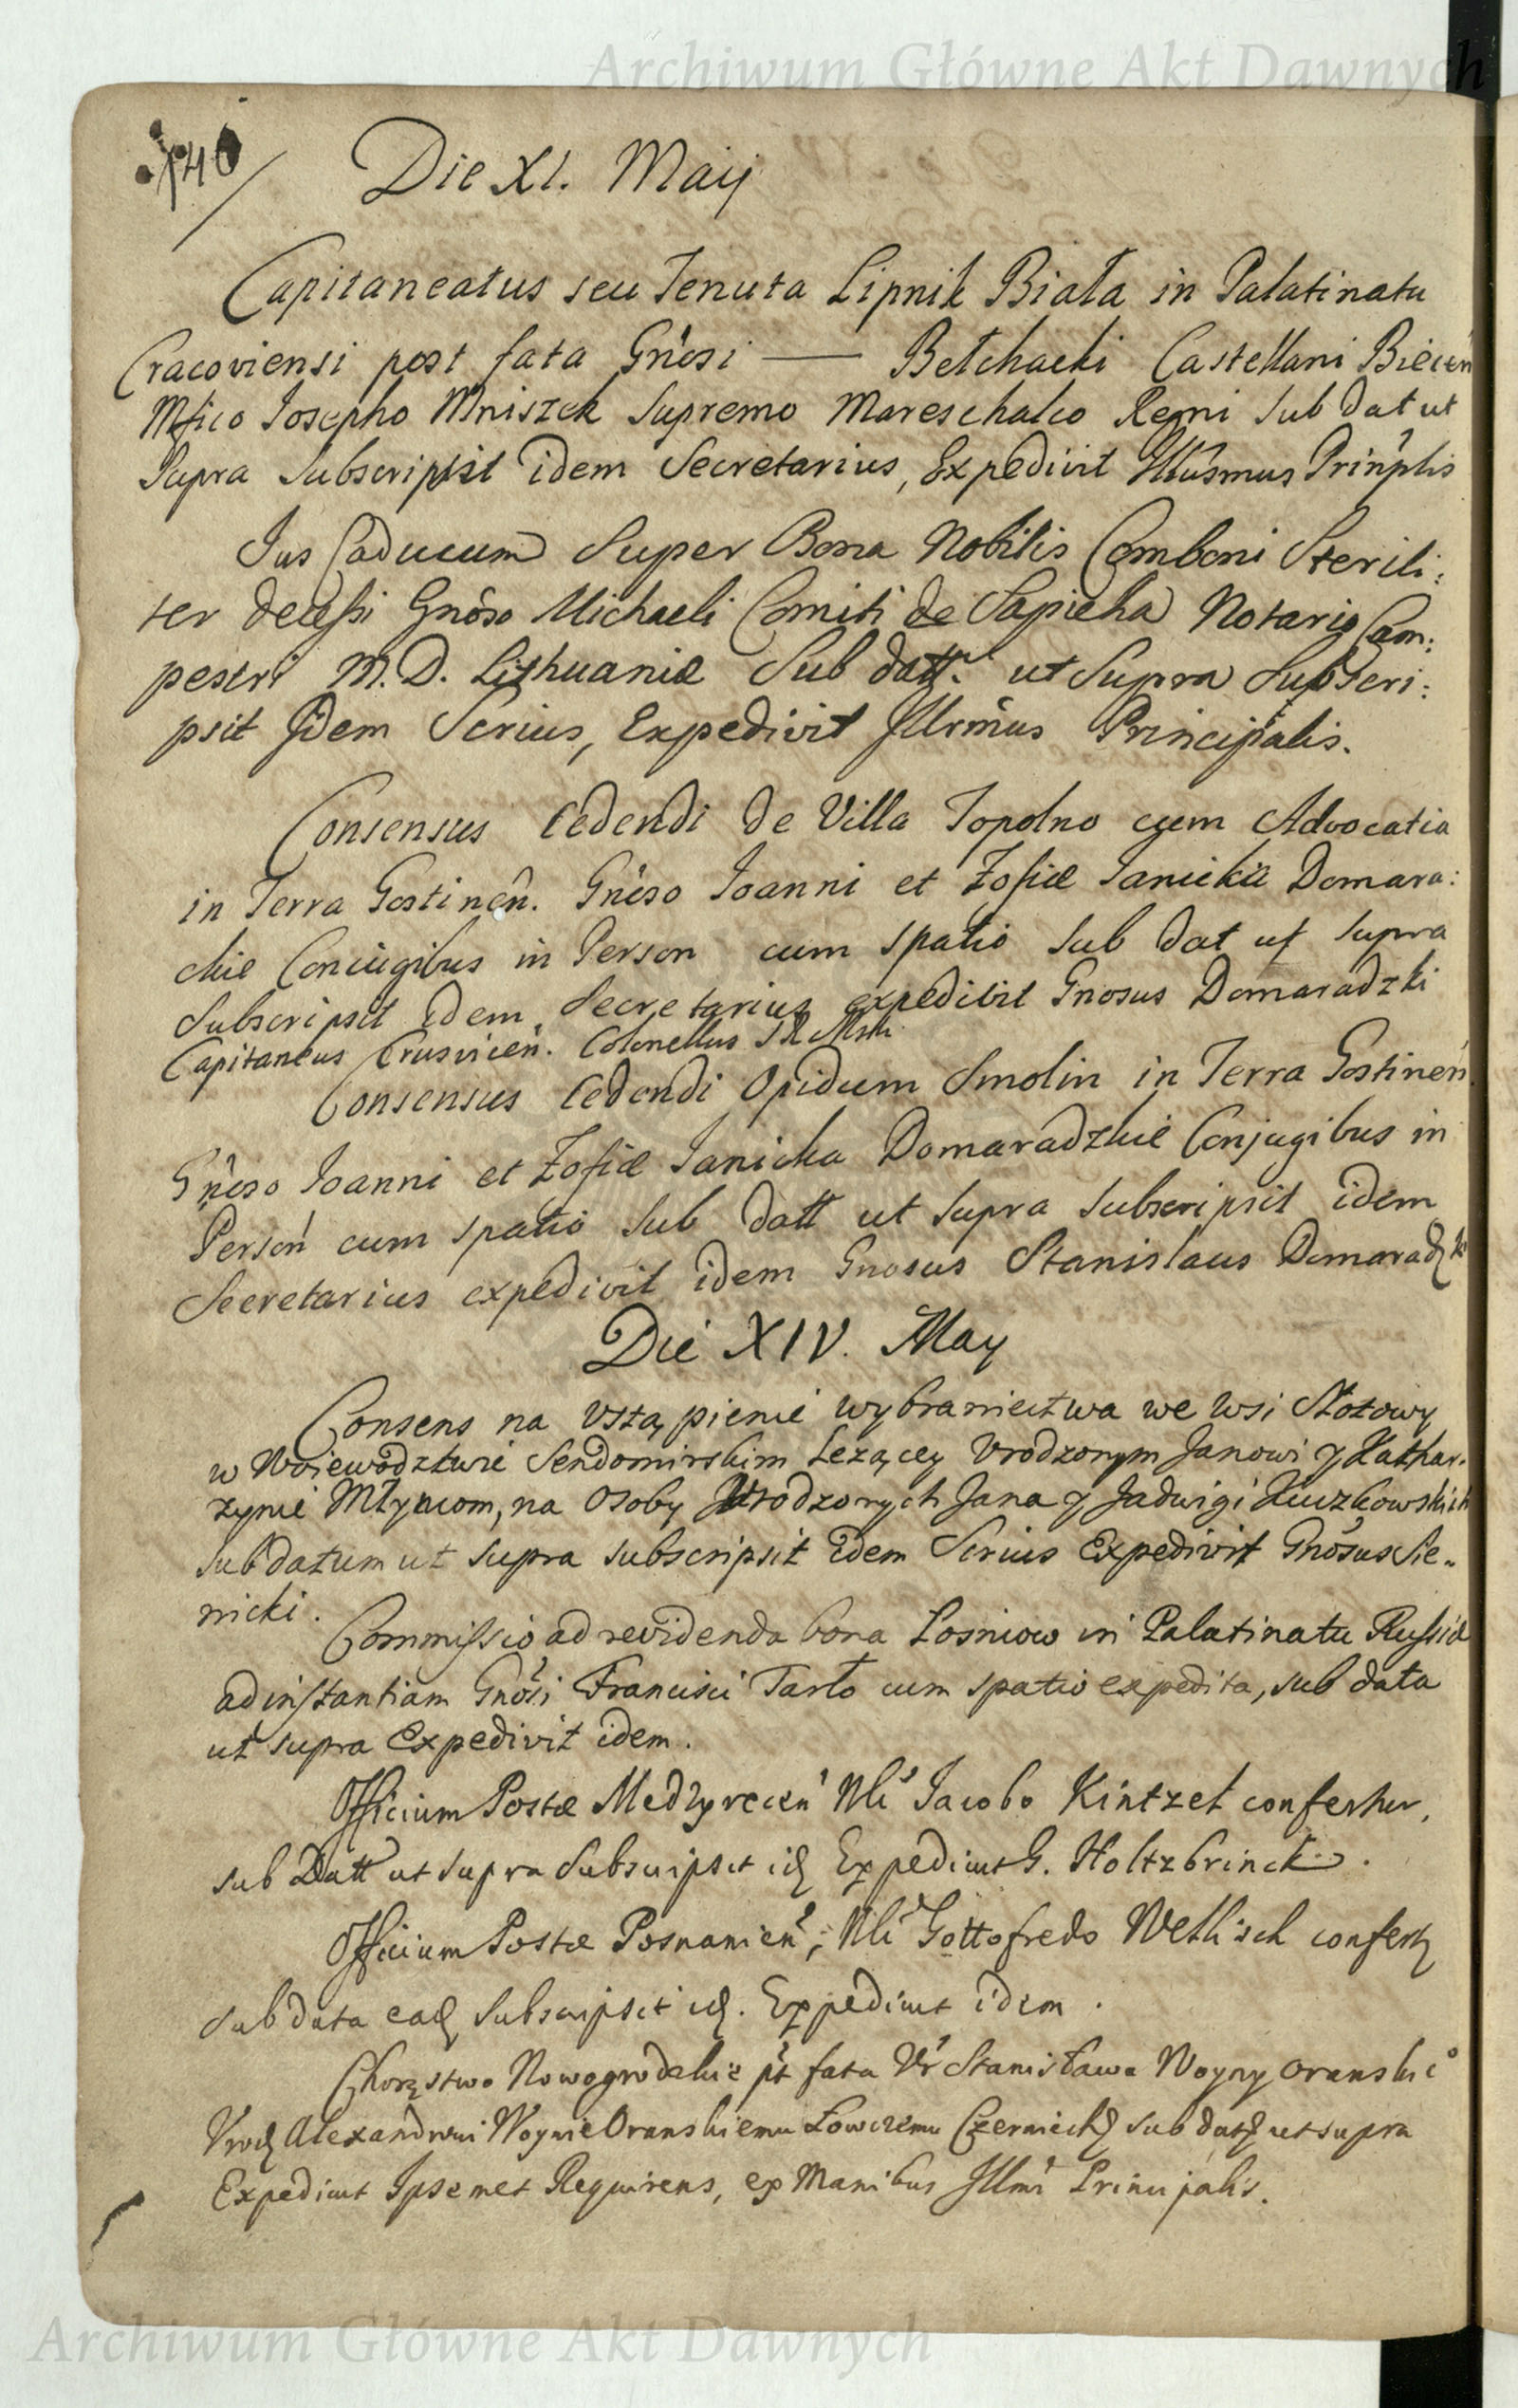 Archiwum Główne Akt Dawnych
140
Die XI. Maij
Capitaneatus seu Tenuta Lipnik Biała in Palatinatu
Cracoviensi post fata Gnosi — Bełchacki Castellani Biecen
Mfico Iosepho Mniszek Supremo Mareschalco Regni sub dat ut
Supra Subscripsit idem Secretarius, Expedivit Illusmus Prinplis
Jus Caducum Super Bona Nobilis Comboni Sterili:
ter decessi Gnoso Michaeli Comiti de Sapieha Notario Cam:
pestri M. D. Lithuaniæ Sub datt. ut Supra Subscri:
psit Idem Scrius, Expedivit Illrmus Principalis.
Consensus Cedendi de Villa Topolno cum Advocatia
in Terra Gostinen. Gnoso Ioanni et Zofiæ Janickie Domara:
ckie Coniugibus in Person cum spatio sub dat ut supra
Subscripsit idem Secretarius expedivit Gnosus Domaradzki
Capitaneus Crusvicen. Colonellus S R Mtis
Consensus Cedendi Opidum Smolin in Terra Gostinen
Gnoso Ioanni et Zofiæ Janicka Domaradzkie Conjugibus in
Person cum spatio sub datt ut supra subscripsit idem
Secretarius expedivit idem Gnosus Stanislaus Domaradzki
Die XIV. May
Consens na vstąpienie wybraniectwa we wsi
w Woiewodztwie Sendomirskim Lezącey Vrodzonym Janowi y Kathar-
zynie Młynom, na Osoby Urodzonych Jana y Jadwigi Kuczkowskich
sub datum ut supra subscripsit idem Scrius Expedivit Gnosus Sie-
nicki.
Commissio ad revidenda bona Losniow in Palatinatu Russiæ
ad instantiam Gnosi Francisci Tarło cum spatio expedita, sub data
ut supra Expedivit idem.
Officium Postæ Medzyrecen Nli Jacobo Kintzel confertur,
sub Datt ut supra Subscripsit id Expedivit G. Holtzbrinck.
Officium Postæ Posnanien, Nli Gottofredo Wethisch confert
sub data ead Subscripsit id. Expedivit idem.
Chorąstwo Nowogrodzkie pt fata Vr Stanisława Woyny Oranskio
Vrod Alexandrowi Woynie Oranskiemu Łowczemu Czerniech sub datt ut supra
Expedivit Ipsemet Requirens, ex Manibus Illmi Principalis.
Archiwum Główne Akt Dawnych